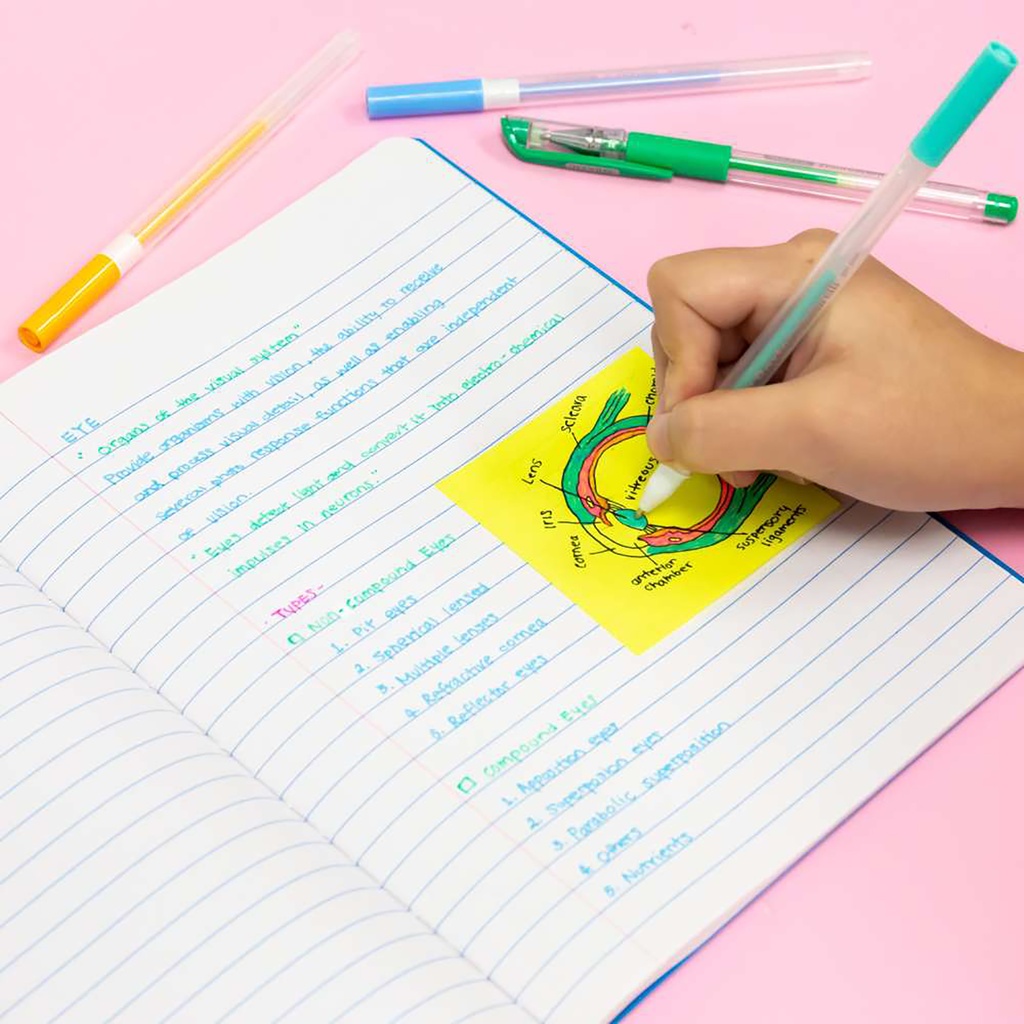 EYE
" Organs of the visual system"
Provide organisms with vision, the ability to receive
and process visual detail, as well as enabling
several photo response functions that are independent
of vision.
" Eyes detect light and convert it into electro-chemical
impulses in neurons."
TYPES-
Non-Compound Eyes
1. Pit eyes
2. Spherical lensed
3. Multiple lenses
4. Refractive cornea
5. Reflector eyes
Compound Eyes
1. Apposition eyes
2. Superposition eyes
3. Parabolic superposition
4. Others
5. Nutrients
scleara
Lens
Iris
cornea
vitreous
anterior
chamber
suspensory
ligaments